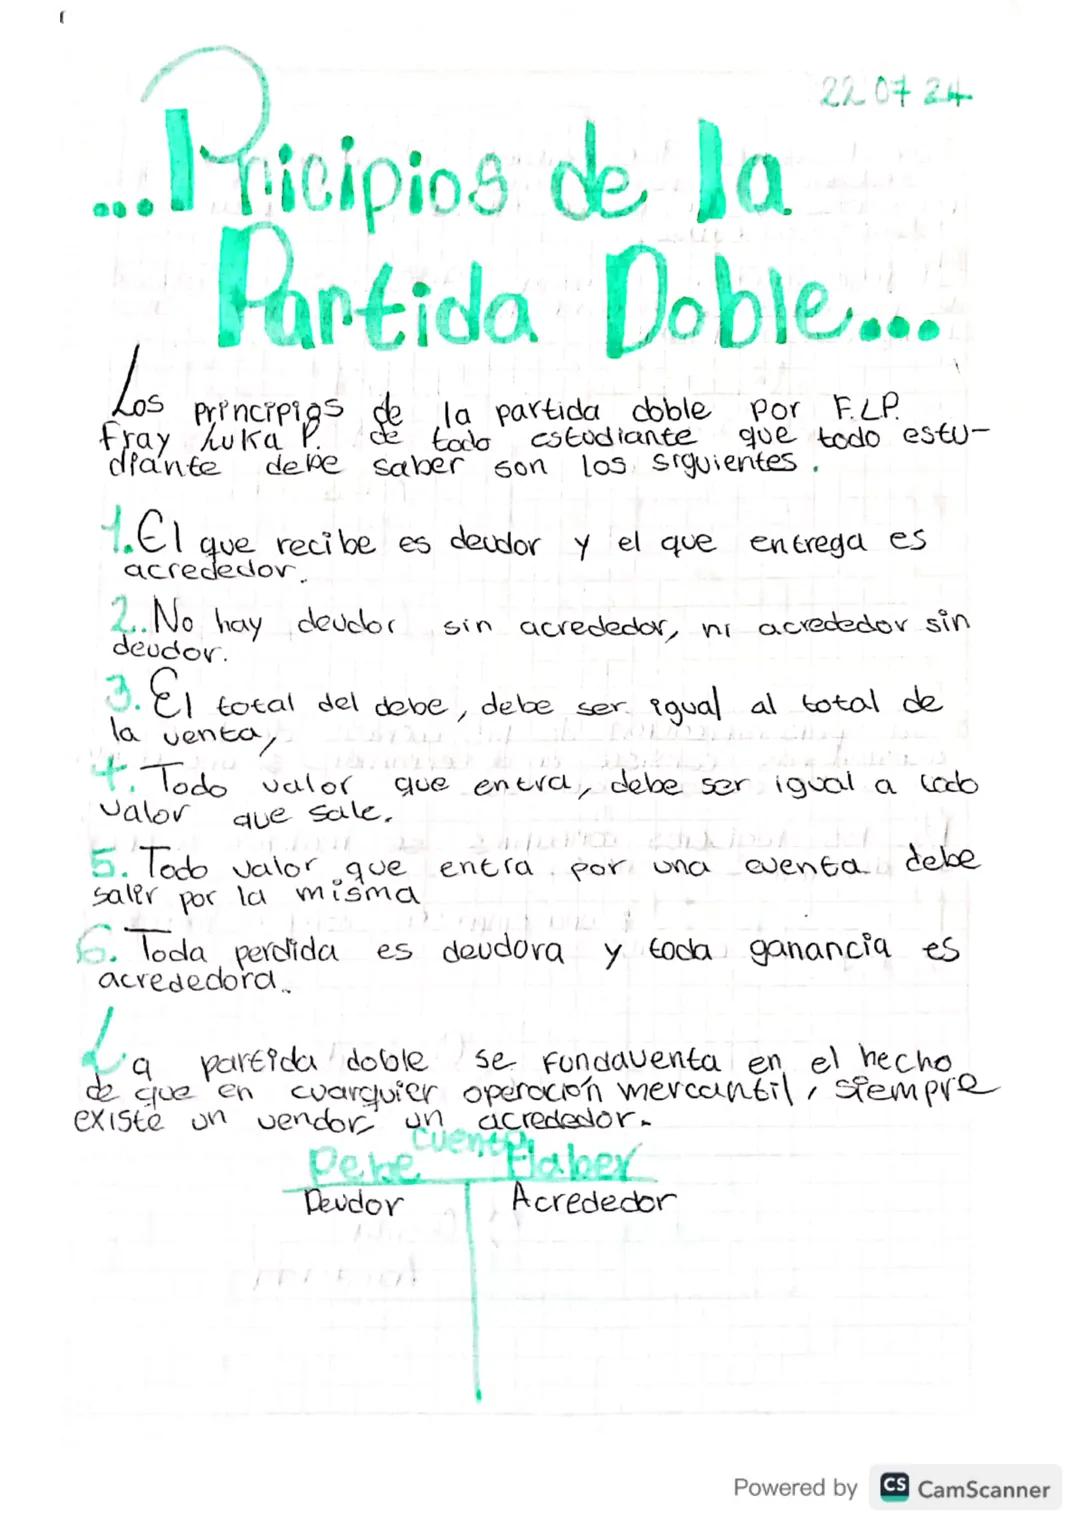 22 07 24
...Pricipios de la
Partida Doble...
Los principios de la partida doble por F.L.P.
Fray Luka P. de todo estudiante que todo estu-
diante debe saber son los siguientes.
1. El que recibe es deudor y el que entrega es
acrededor.
2. No hay deudor sin acrededor, ni acrededor sin
deudor.
3. El total del debe, debe ser igual al total de
la venta,
4. Todo valor que entra, debe ser igual a todo
valor que sale.
5. Todo valor que entra por una cuenta debe
salir por la misma
6. Toda perdida es deudora y toda ganancia es
acrededora.
La partida doble se fundaventa en el hecho
de que en cuarquier operación mercantil, siempre
existe un vendor un acrededor.
Cuenta
Debe Haber
Deudor Acrededor
Powered by CS CamScanner